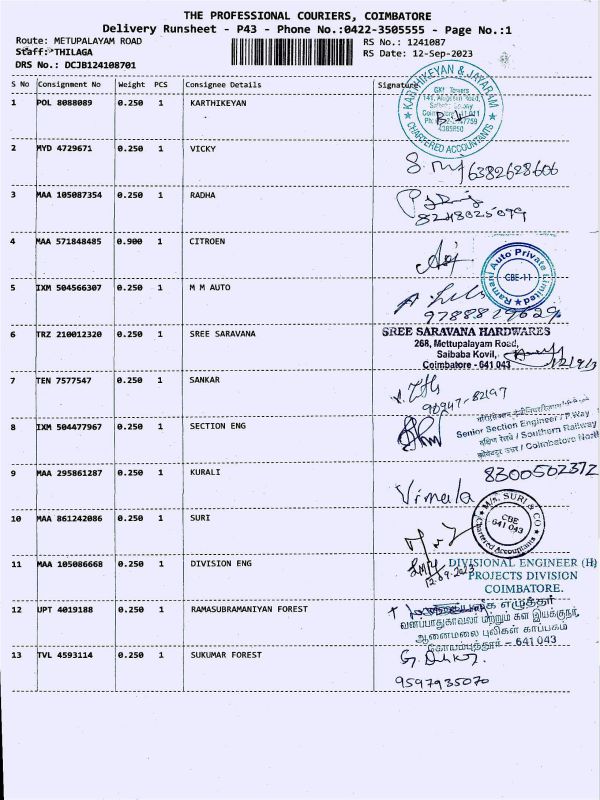 THE PROFESSIONAL COURIERS, COIMBATORE
Delivery Runsheet - P43 - Phone No.:0422-3505555 - Page No.:1
Route: METUPALAYAM ROAD RS No.: 1241087
Staff: THILAGA RS Date: 12-Sep-2023
DRS No.: DCJB124108701
S No Consignment No Weight PCS Consignee Details Signature
1 POL 8088089 0.250 1 KARTHIKEYAN
KARTHIKEYAN & JAYARAM
CHARTERED ACCOUNTANTS
2 MYD 4729671 0.250 1 VICKY
6382628606
3 MAA 105087354 0.250 1 RADHA
8248025099
4 MAA 571848485 0.900 1 CITROEN
Ramani Auto Private Limited
CBE-11
5 IXM 504566307 0.250 1 M M AUTO
9788819629
6 TRZ 210012320 0.250 1 SREE SARAVANA
SREE SARAVANA HARDWARES
268, Mettupalayam Road,
Saibaba Kovil,
Coimbatore - 641 043
7 TEN 7577547 0.250 1 SANKAR
90247-82197
8 IXM 504477967 0.250 1 SECTION ENG
Senior Section Engineer / P.Way
दक्षिण रेलवे / Southern Railway
कोयंबटूर उत्तर / Coimbatore North
9 MAA 295861287 0.250 1 KURALI
8300502372
Vimala
10 MAA 861242086 0.250 1 SURI
M/s. SURI & CO
CBE
641 043
Chartered Accountants
11 MAA 105086668 0.250 1 DIVISION ENG
12.09.2023
DIVISIONAL ENGINEER (H)
PROJECTS DIVISION
COIMBATORE.
12 UPT 4019188 0.250 1 RAMASUBRAMANIYAN FOREST
வனப்பாதுகாவலர் மற்றும் கள இயக்குநர்,
ஆனைமலை புலிகள் காப்பகம்
கோயம்புத்தூர் - 641 043
13 TVL 4593114 0.250 1 SUKUMAR FOREST
9597935070